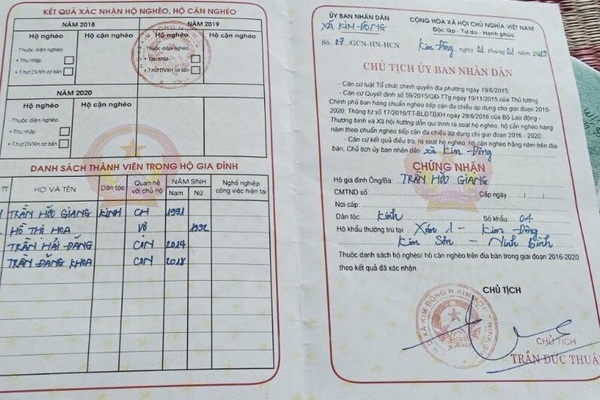 KẾT QUẢ XÁC NHẬN HỘ NGHÈO, HỘ CẬN NGHÈO
NĂM 2018
NĂM 2019
Hộ nghèo
Hộ cận nghèo
Hộ nghèo
Hộ cận nghèo
Thuộc diện nghèo:
+ Thu nhập
+ Thiếu DVXH cơ bản
NĂM 2020
Hộ nghèo
Hộ cận nghèo
Thuộc diện nghèo:
+ Thu nhập
+ Thiếu DVXH cơ bản
DANH SÁCH THÀNH VIÊN TRONG HỘ GIA ĐÌNH
TT
HỌ VÀ TÊN
Dân tộc
Quan hệ với chủ hộ
NĂM SINH
Nam
Nữ
Nghề nghiệp công việc hiện tại
TRẦN HỮU GIANG Kinh CH 1991
HỒ THỊ HOA Vợ 1992
TRẦN HẢI ĐĂNG CON 2014
TRẦN ĐĂNG KHOA CON 2018
ỦY BAN NHÂN DÂN
XÃ KIM ĐÔNG
Số 07/GCN-HN-HCN
CỘNG HÒA XÃ HỘI CHỦ NGHĨA VIỆT NAM
Độc lập - Tự do - Hạnh phúc
Kim Đông, ngày
CHỦ TỊCH ỦY BAN NHÂN DÂN
- Căn cứ luật Tổ chức chính quyền địa phương ngày 19/6/2015;
- Căn cứ Quyết định số 59/2015/QĐ-TTg ngày 19/11/2015 của Thủ tướng
Chính phủ ban hàng chuẩn nghèo tiếp cận đa chiều áp dụng cho giai đoạn 2016-
2020; Thông tư số 17/2016/TT-BLĐTBXH ngày 28/6/2016 của Bộ Lao động -
Thương binh và Xã hội hướng dẫn quy trình rà soát hộ nghèo, hộ cận nghèo hàng
năm theo chuẩn nghèo tiếp cận đa chiều áp dụng cho giai đoạn 2016-2020.
- Căn cứ kết quả điều tra, rà soát hộ nghèo, hộ cận nghèo hằng năm trên địa
bàn. Chủ tịch ủy ban nhân dân xã Kim Đông
CHỨNG NHẬN
Hộ gia đình Ông/Bà: TRẦN HỮU GIANG
CMTND số Cấp ngày
Nơi cấp
Dân tộc Kinh Số khẩu 04
Hộ khẩu thường trú tại Xóm 1 - Kim Đông
Kim Sơn - Ninh Bình
Thuộc danh sách hộ nghèo/ hộ cận nghèo trên địa bàn trong giai đoạn 2016-2020
theo kết quả đã xác nhận.
CHỦ TỊCH
CHỦ TỊCH
TRẦN ĐỨC THUẬN